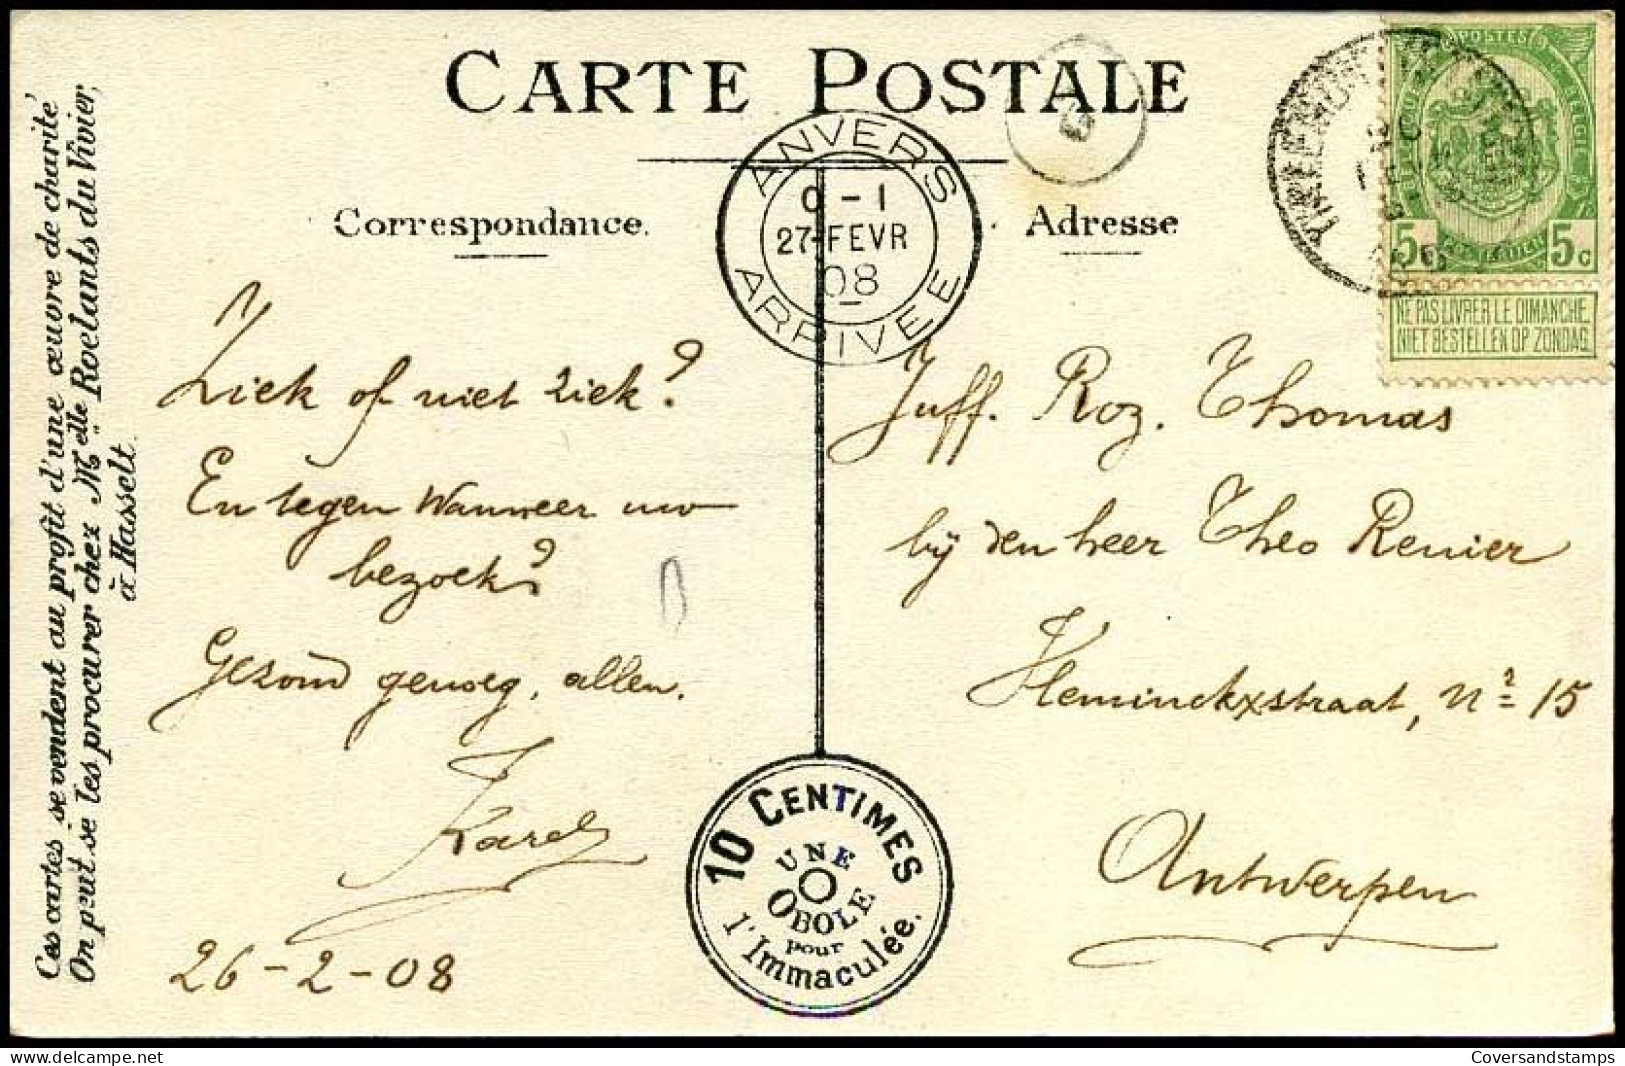 CARTE POSTALE
Correspondance.
Adresse
Ces cartes se vendent au profit d'une œuvre de charité
On peut se les procurer chez Melle Roelants du Vivier,
à Hasselt.
ANVERS
0-1
27 FEVR
08
ARRIVÉE
POSTES
5c 5c
NE PAS LIVRER LE DIMANCHE.
NIET BESTELLEN OP ZONDAG.
Ziek of niet ziek?
En tegen wanneer uw
bezoek?
Gezond genoeg, allen.
Karel
26-2-08
Juff. Roz. Thomas
bij den heer Theo Renier
Keminckxstraat, Nr 15
Antwerpen
10 CENTIMES
UNE
OBOLE
pour
l'Immaculée.
Coversandstamps